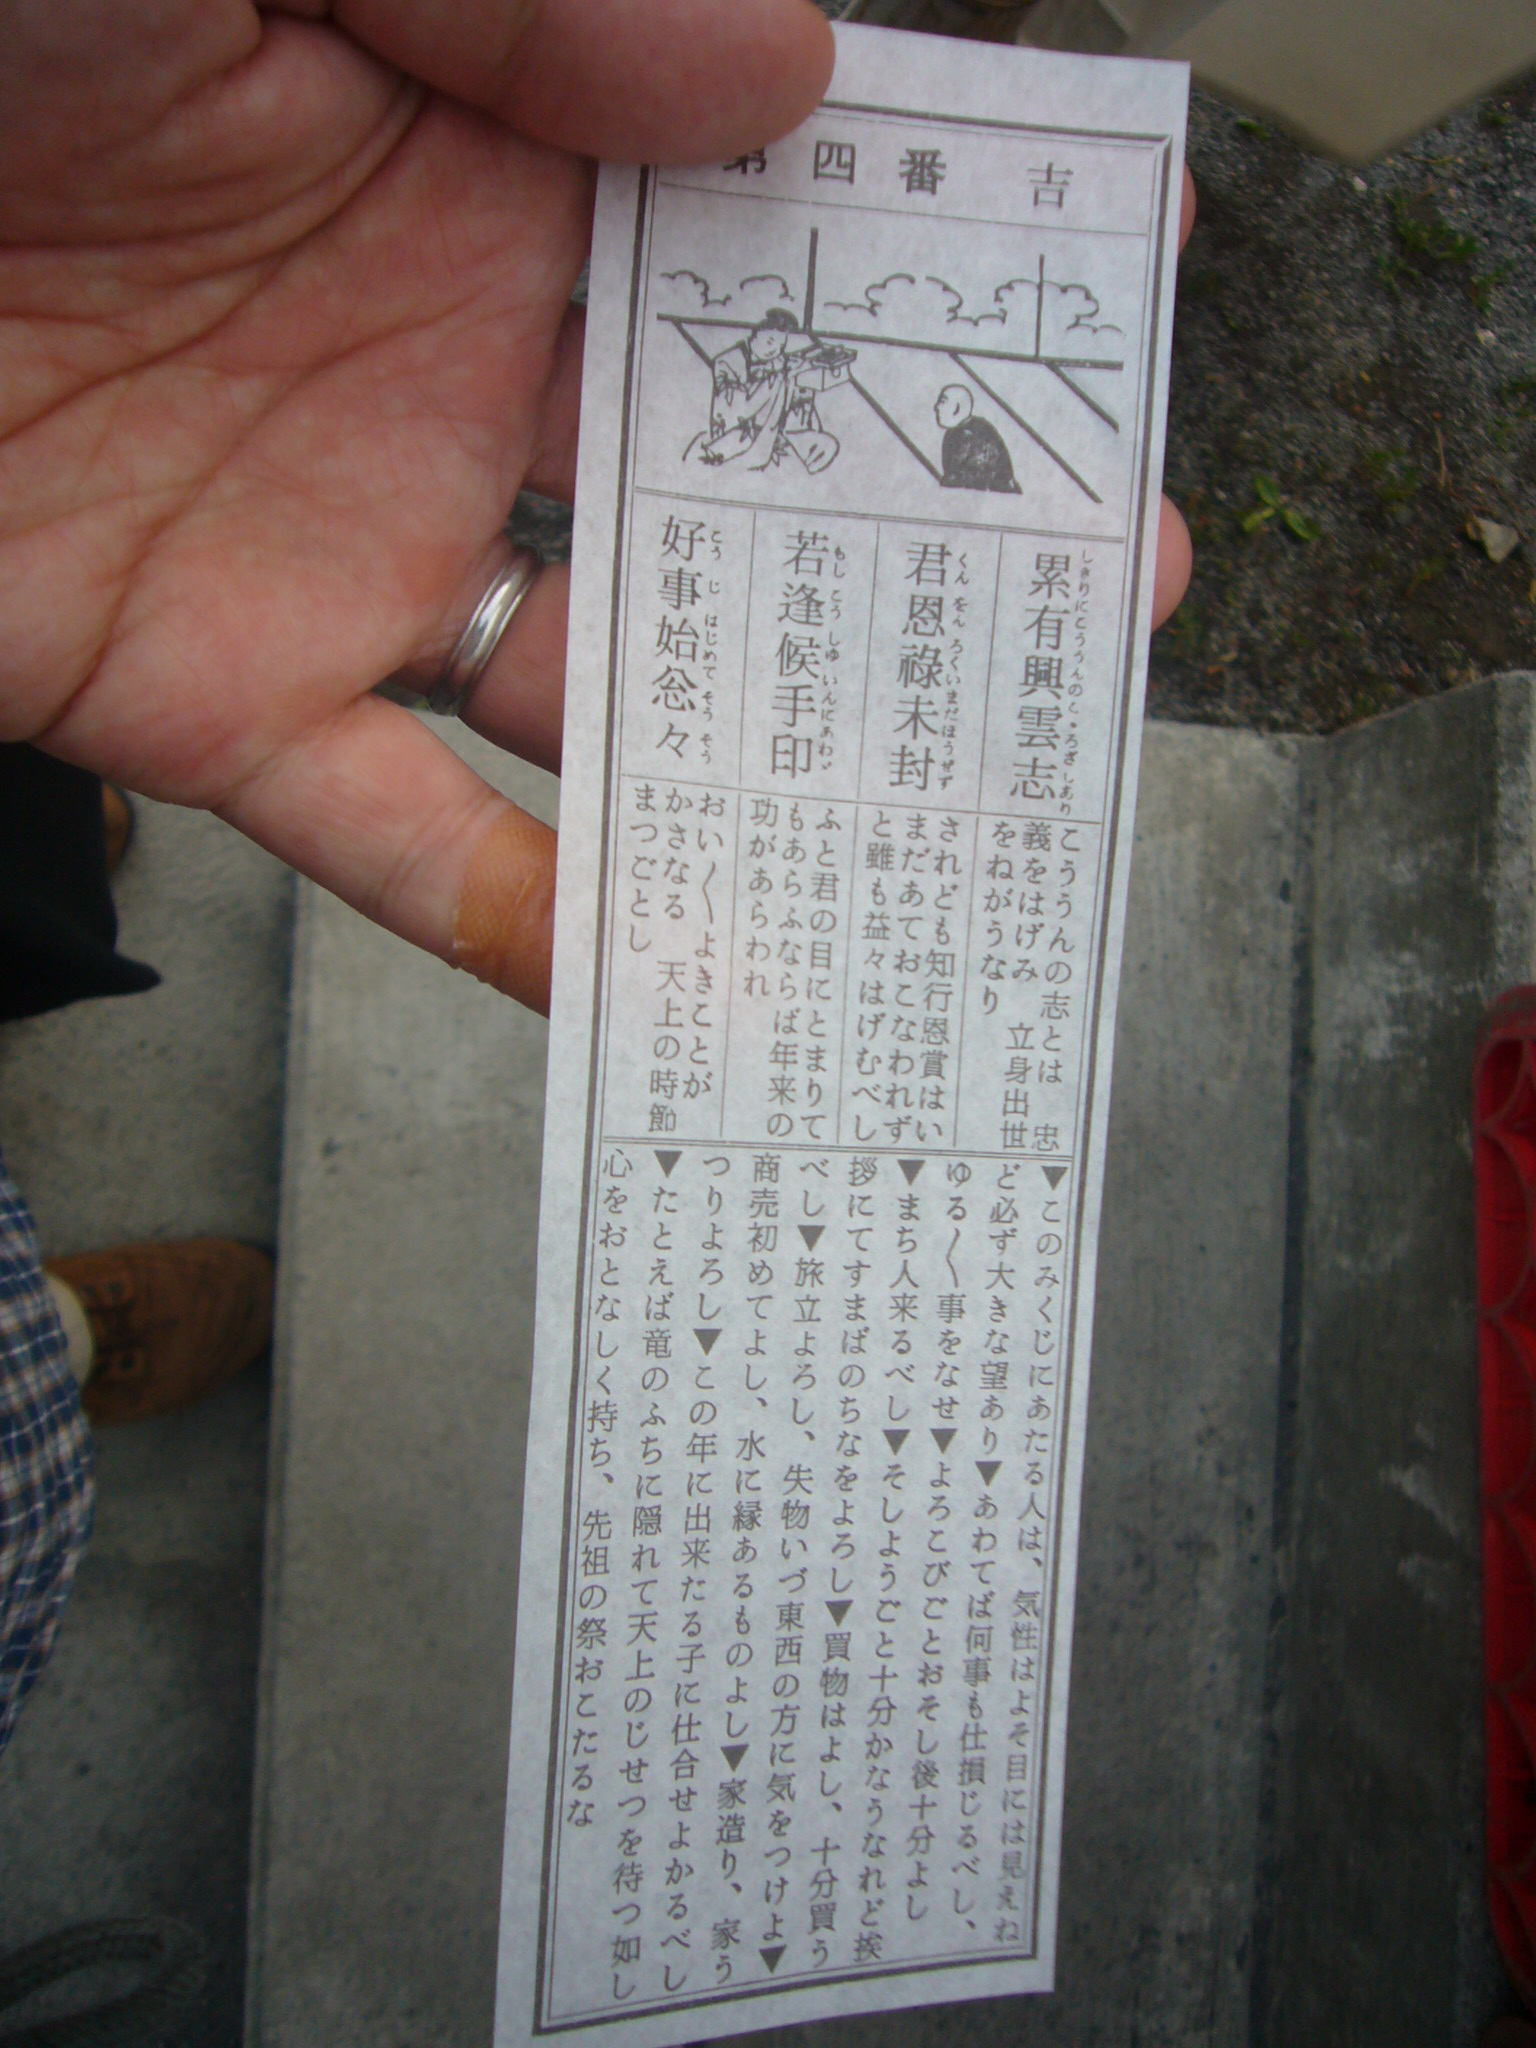 第四番 吉
累有興雲志
しきりにこううんのこゝろざしあり
君恩祿未封
くんをんろくいまだほうせず
若逢候手印
もしとうしゆいんにあわゞ
好事始忩々
こうじはじめてそうそう
こううんの志とは 忠
義をはげみ 立身出世
をねがうなり
されども知行恩賞はい
まだあておこなわれず
と雖も益々はげむべし
ふと君の目にとまりて
もあらふならば年来の
功があらわれ
おい〱よきことが
かさなる 天上の時節
まつごとし
▼このみくじにあたる人は、気性はよそ目には見えね
ど必ず大きな望あり▼あわてば何事も仕損じるべし、
ゆる〱事をなせ▼よろこびごとおそし後十分よし
▼まち人来るべし▼そしようごと十分かなうなれど挨
拶にてすまばのちなをよろし▼買物はよし、十分買う
べし▼旅立よろし、失物いづ東西の方に気をつけよ▼
商売初めてよし、水に縁あるものよし▼家造り、家う
つりよろし▼この年に出来たる子に仕合せよかるべし
▼たとえば竜のふちに隠れて天上のじせつを待つ如し
心をおとなしく持ち、先祖の祭おこたるな